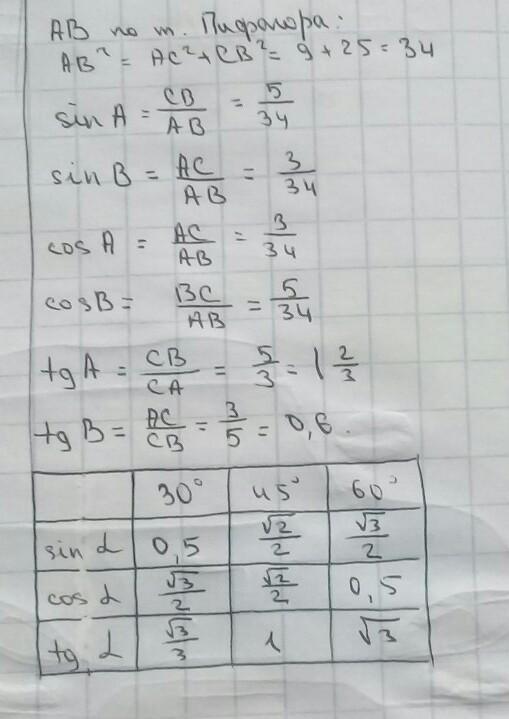 AB по т. Пифагора:
AB² = AC² + CB² = 9 + 25 = 34
sin A = CB/AB = 5/34
sin B = AC/AB = 3/34
cos A = AC/AB = 3/34
cos B = BC/AB = 5/34
tg A = CB/CA = 5/3 = 1 2/3
tg B = AC/CB = 3/5 = 0,6.
30° 45° 60°
sin α 0,5 √2/2 √3/2
cos α √3/2 √2/2 0,5
tg α √3/3 1 √3